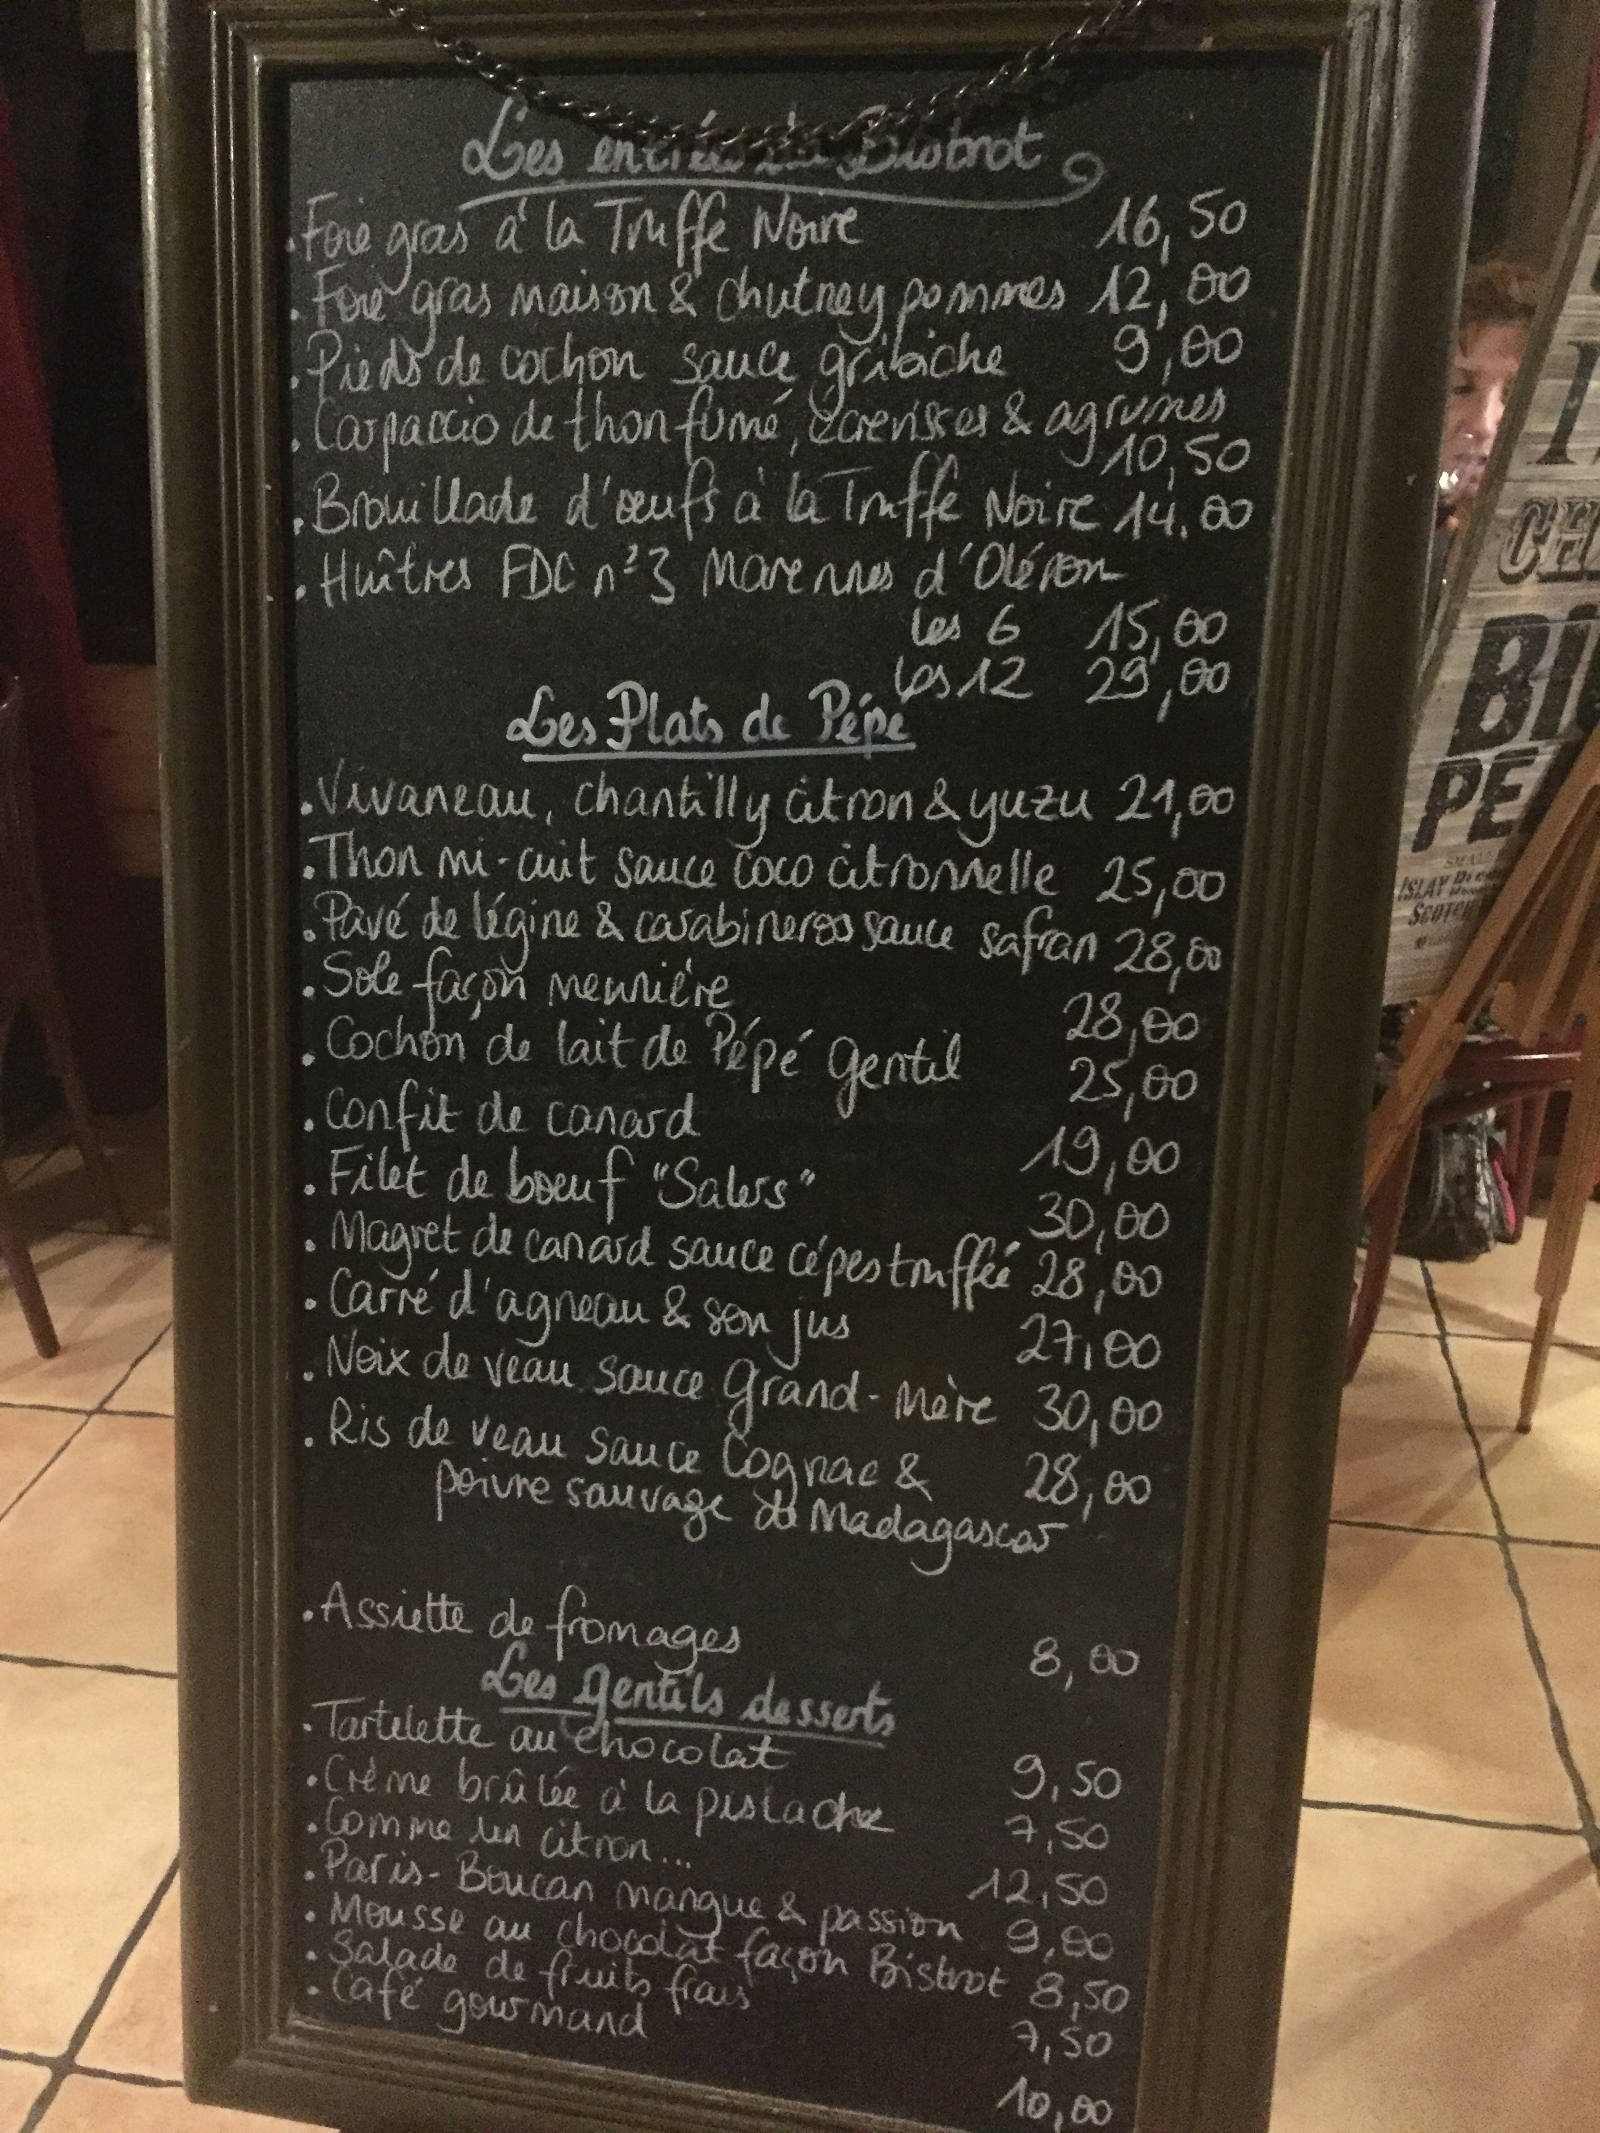 Les entrées du Bistrot
. Foie gras à la Truffe Noire 16,50
. Foie gras maison & chutney pommes 12,00
. Pieds de cochon sauce gribiche 9,00
. Carpaccio de thon fumé, écrevisses & agrumes
10,50
. Brouillade d'œufs à la Truffe Noire 14,00
. Huîtres FDC n°3 Marennes d'Oléron
les 6 15,00
les 12 29,00
Les Plats de Pépé
. Vivaneau, chantilly citron & yuzu 21,00
. Thon mi-cuit sauce coco citronnelle 25,00
. Pavé de légine & carabineros sauce safran 28,00
. Sole façon meunière 28,00
. Cochon de lait de Pépé gentil 25,00
. Confit de canard 19,00
. Filet de boeuf "Salers" 30,00
. Magret de canard sauce cépes truffée 28,00
. Carré d'agneau & son jus 27,00
. Noix de veau sauce Grand-mère 30,00
. Ris de veau sauce Cognac & 28,00
poivre sauvage de Madagascar
. Assiette de fromages 8,00
Les gentils desserts
. Tartelette au chocolat 9,50
. Crème brûlée à la pistache 7,50
. Comme un citron... 12,50
. Paris-Boucan mangue & passion 9,00
. Mousse au chocolat façon Bistrot 8,50
. Salade de fruits frais 7,50
. Café gourmand 10,00
CH
BI
PE
ISLAY
SCOTCH